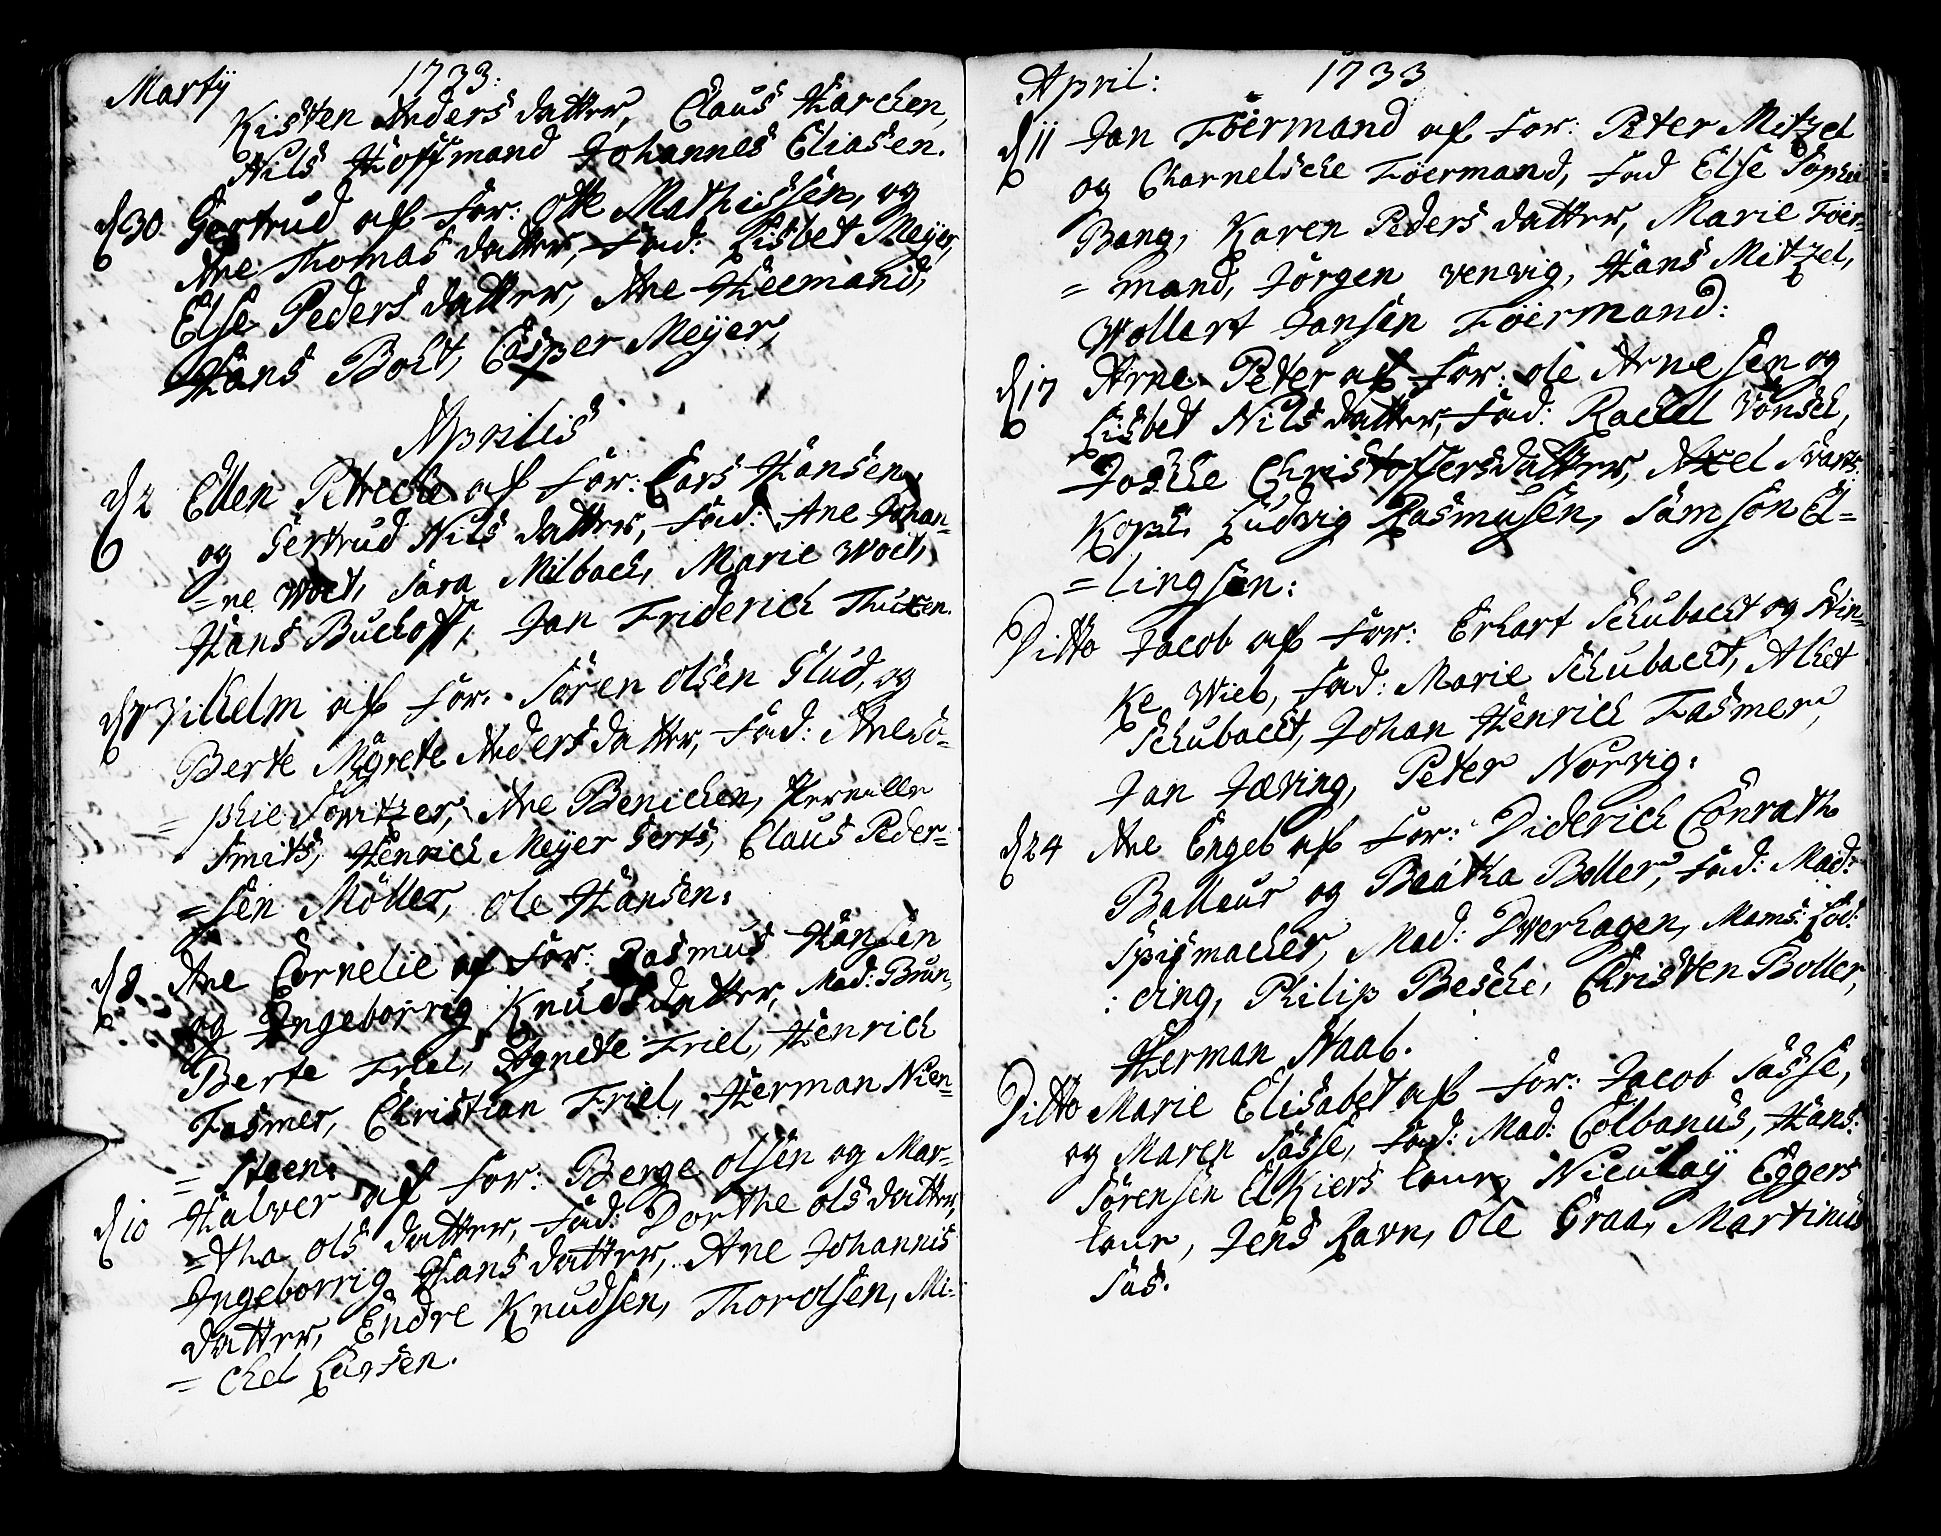 Martÿ 1733:
Kisten Anders datter, Claus Harchen,
Nils Hoffmand Johannes Eliasen.
d 30 Gertrud af for: Otte Mathissen, og
Ane Thomas datter, fad: Lisbet Meyer,
Else Peders datter, Ane Heemand,
Hans Bolt, Casper Meÿer,
Aprilis
d 2 Ellen Petreche af for: Lars Hansen,
og Gertrud Nils datter, fad: Ane Johan-
=ne Woet, Sara Milbach, Marie Woet,
Hans Buchoff, Jan Friderich Thuxen.
Vilhelm af for: Sören Olsen Glud, og
Berte Mgrete Anders datter, fad: Ane So-
=phie Switzer, Ane Benichen, Pernille
Smits, Henrich Meÿer Gerts, Claus Peder-
=sen Möller, Ole Hansen:
d 8 Ane Cornelie af for: Rasmus Hansen
og Ingeborrig Knuds datter, Mad: Brun,
Berte Friel, Agnete Friel, Henrich
Fasmer, Christian Friel, Herman Nien-
=steen:
d 10 Halver af for: Berge Olsen og Mar-
=tha Ols datter, fad: Dorthe Ols datter,
Ingeborrig Hans datter, Ane Johannis
datter, Endre Knudsen, Thorolsen, Mi-
=chel Larsen.
April: 1733
d 11 Jan Föermand af for: Peter Mitzel
og Charnelsche Föermand, fad Else Sophie
Bang, Karen Peders datter, Marie Föer-
=mand, Jörgen Venvig, Hans Mitzel,
Wollert Jansen Föermand:
d 17 Arne Peter af for: Ole Arnesen og
Lisbet Nils datter, fad: Rachel Vönsch,
Christoffersdatter, Axel
Ludvig Rasmusen, Samson El-
=lingsen:
Ditto Jacob af for: Erhart Schubacht og Hin-
ke Wieb, fad: Marie Schubacht, Alhet
Schubacht, Johan Henrich Fasmer,
Jan Jæving, Peter Norvig:
d 24 Ane Engel af for: Diderich Conrath
Balleur og Beatha Boller, fad: Mad:
Spismacher, Mad: Dverhagen, Mams: Löd:
:ding, Philip Besche, Christen Boller,
Herman Naab.
Ditto Marie Elisabet af for: Jacob Sasse,
og Maren Sasse, fad: Mad: Colbanus, Hans:
Sörensen Elkiers laur, Niculaÿ Eggers
laur, Jens Ravn, Ole Graa, Martinus
Sas.